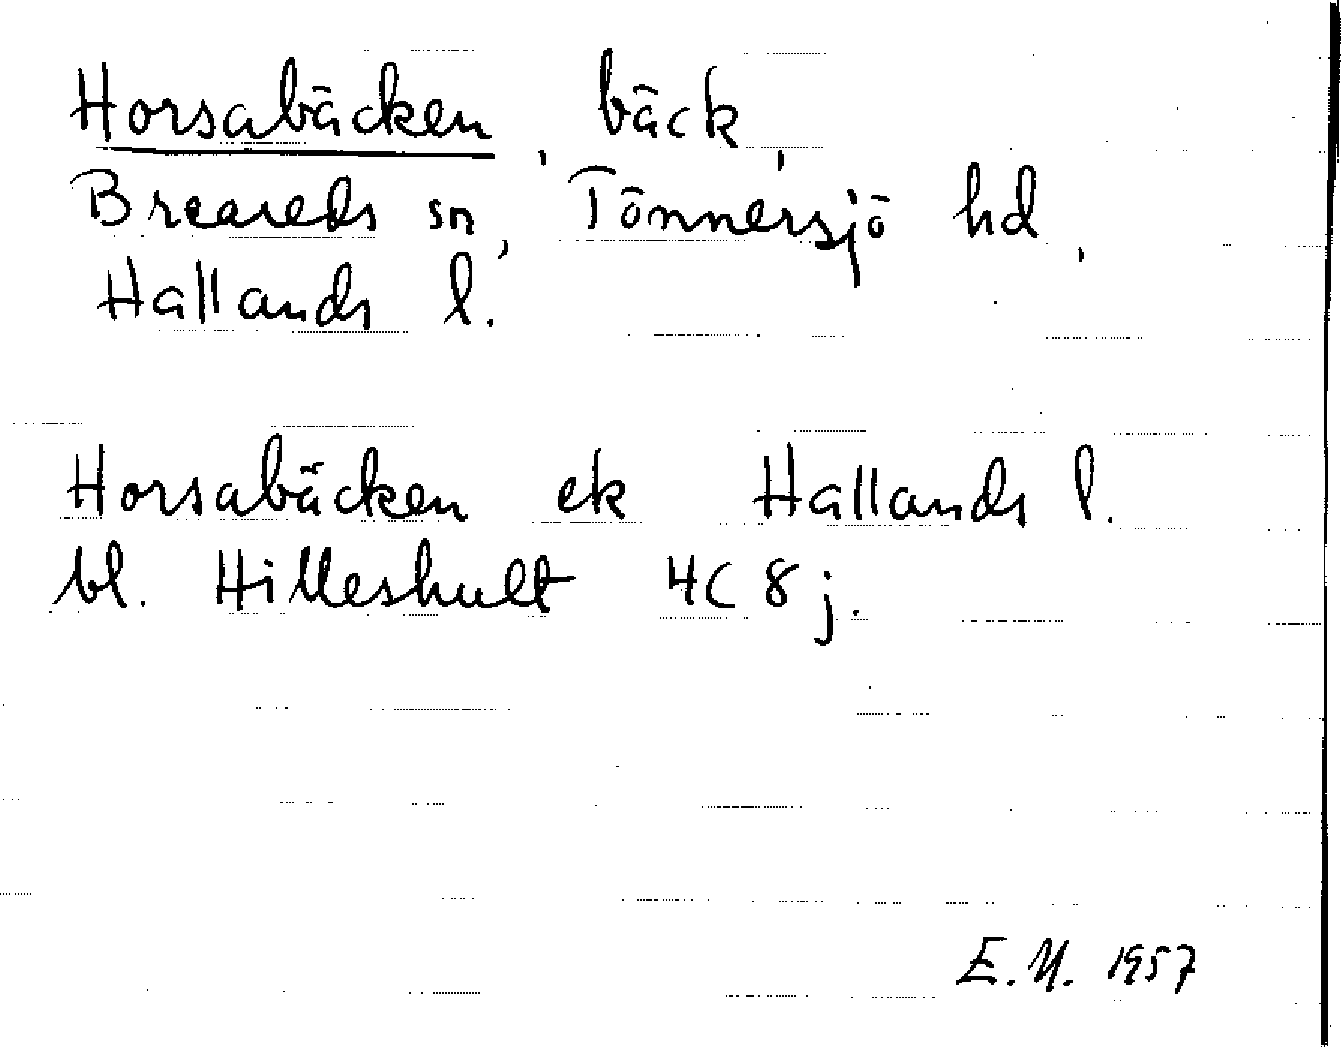 Horsabäcken, bäck,
Breareds sn, Tönnersjö hd,
Hallands l.
Horsabäcken ek Hallands l.
bl. Hilleshult 4C 8j.
E.N. 1957